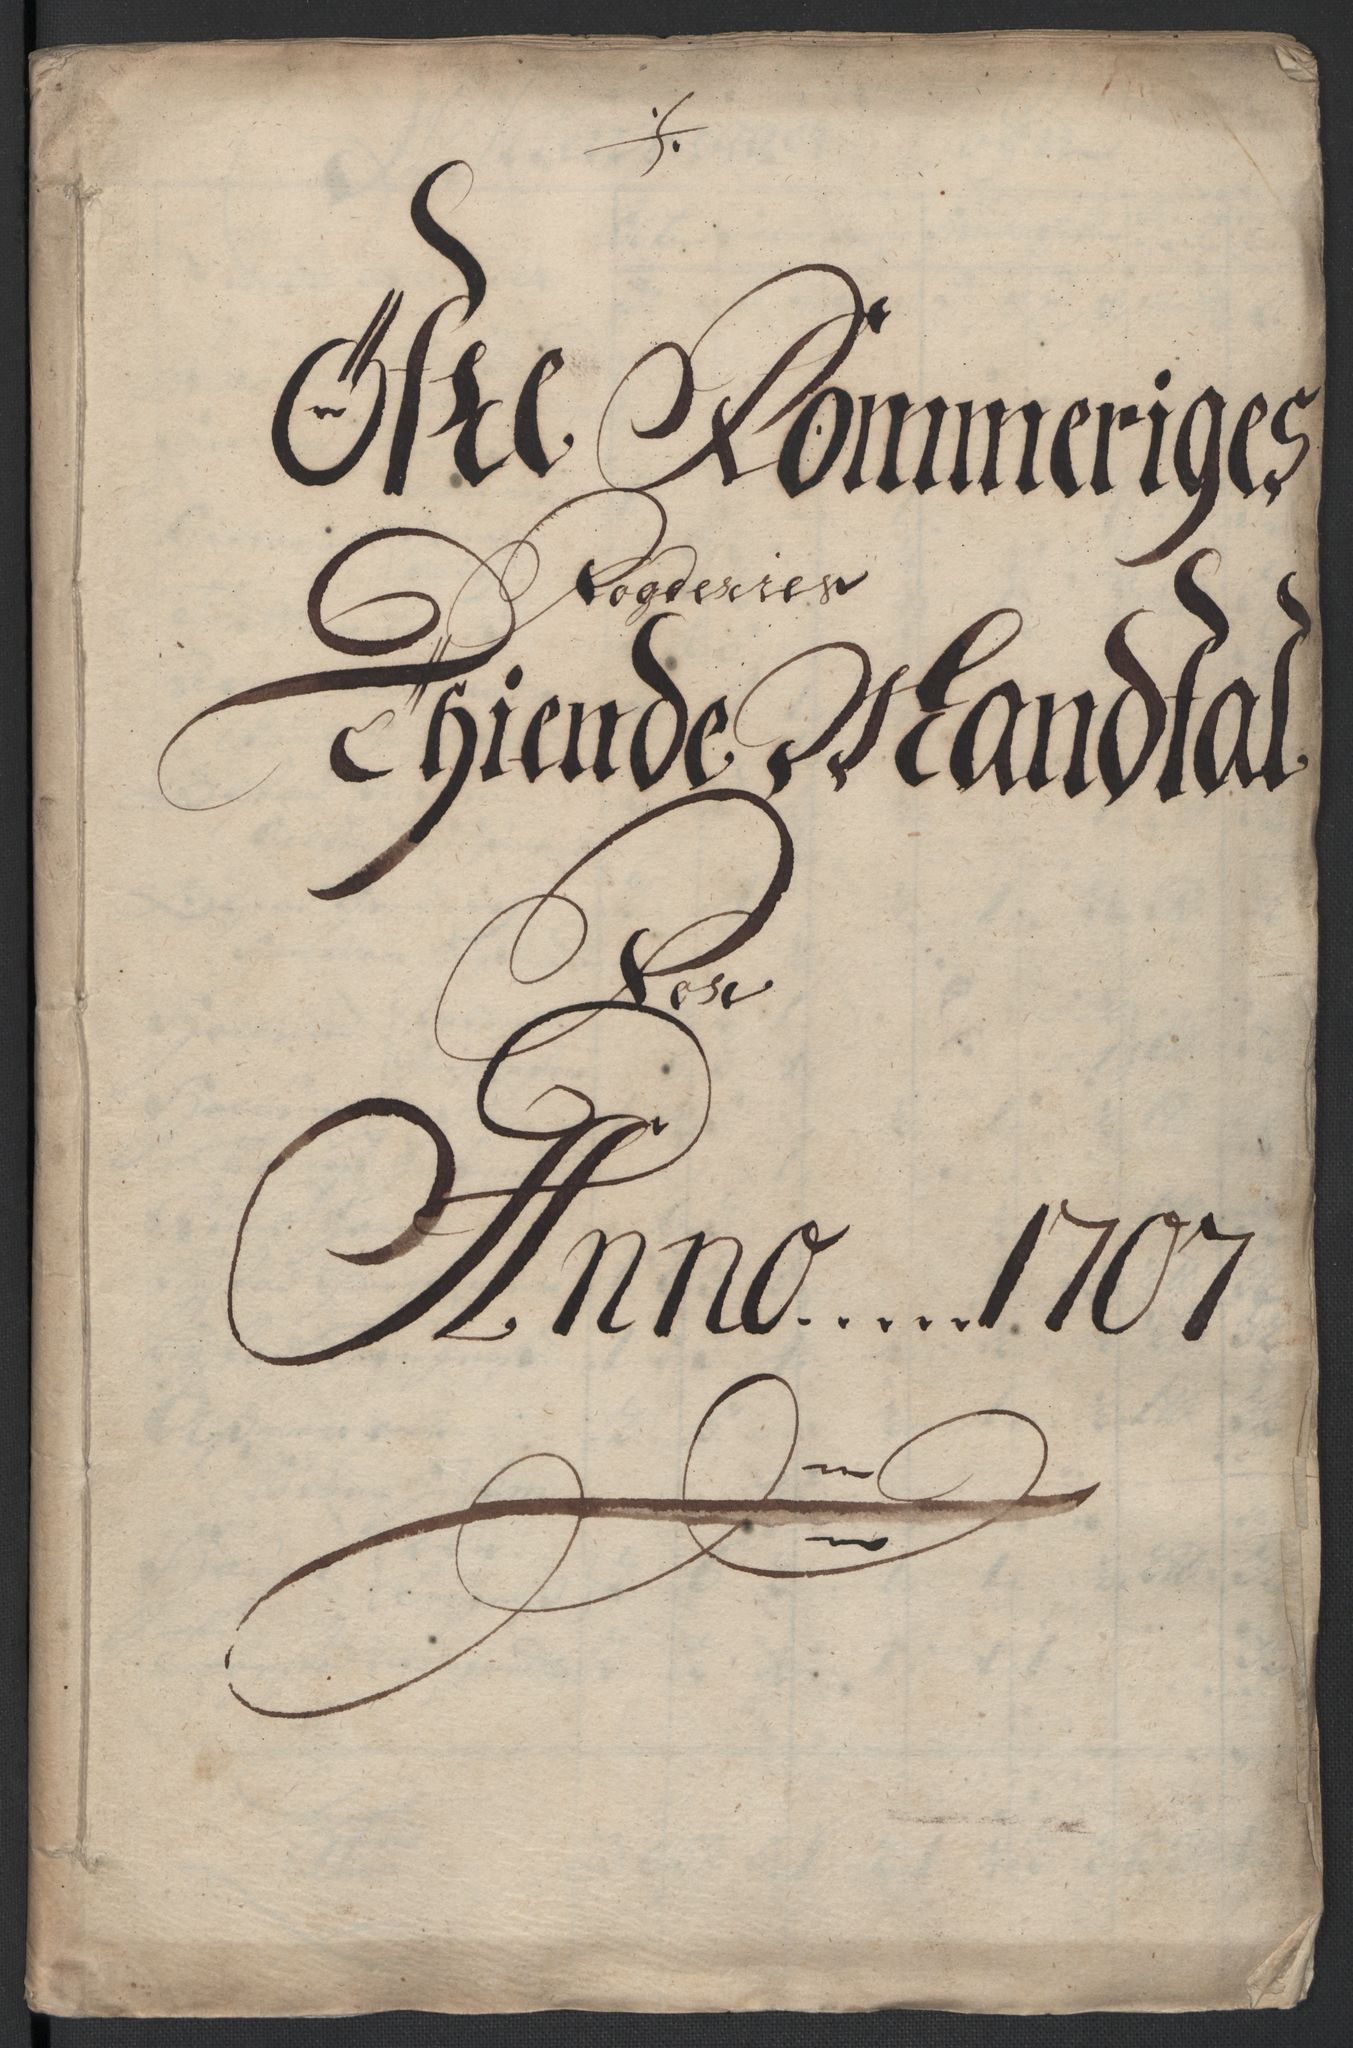 ./.
Öfre Rommeriges
Fogderies
Thiende Mandtal
For
Anno.....1707